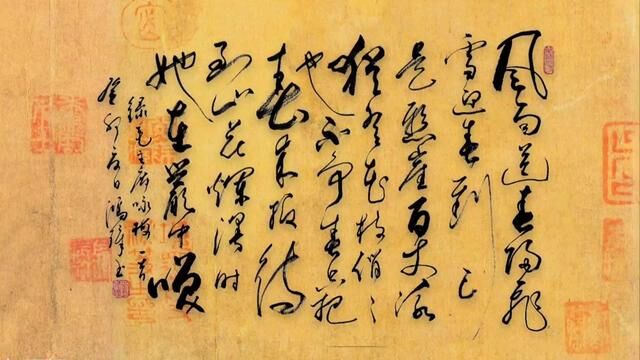 风雨送春归飞
雪迎春到已
是悬崖百丈冰
犹有花枝俏〻
也不争春只把
春来报待
到山花烂漫时
她在丛中笑
录毛主席咏梅一首
癸卯夏日鸿书